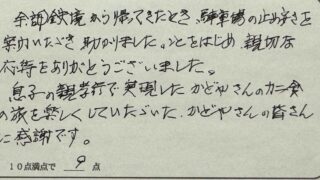 余部鉄橋から帰ってきたとき、駐車場の止め方を
案内いただき助かりました。ことをはじめ親切な
応待をありがとうございました。
息子の親孝行で実現したかどやさんのカニ食
の旅を楽しくしていただいた、かどやさんの皆さん
に感謝です。
10点満点で 9 点